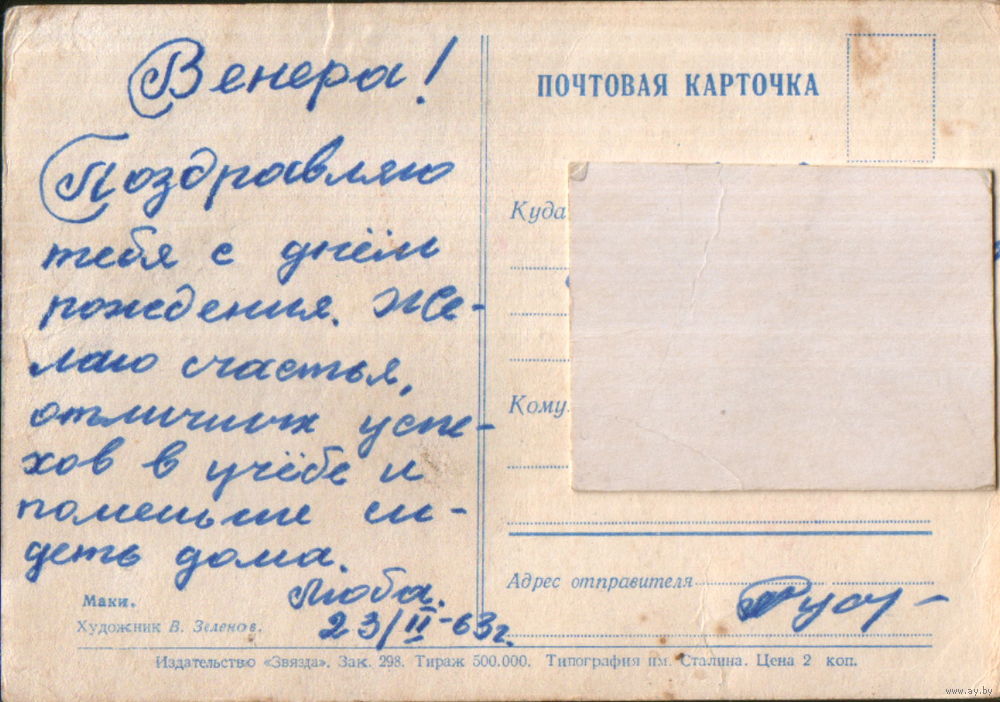 Венера!
Поздравляю
тебя с днём
рождения. Же-
лаю счастья,
отличных успе-
хов в учёбе и
поменьше си-
деть дома.
Люба.
23/II-63г.
Маки.
Художник В. Зеленов.
ПОЧТОВАЯ КАРТОЧКА
Куда
Кому
Адрес отправителя
Издательство «Звязда». Зак. 298. Тираж 500.000. Типография им. Сталина. Цена 2 коп.
www.ay.by